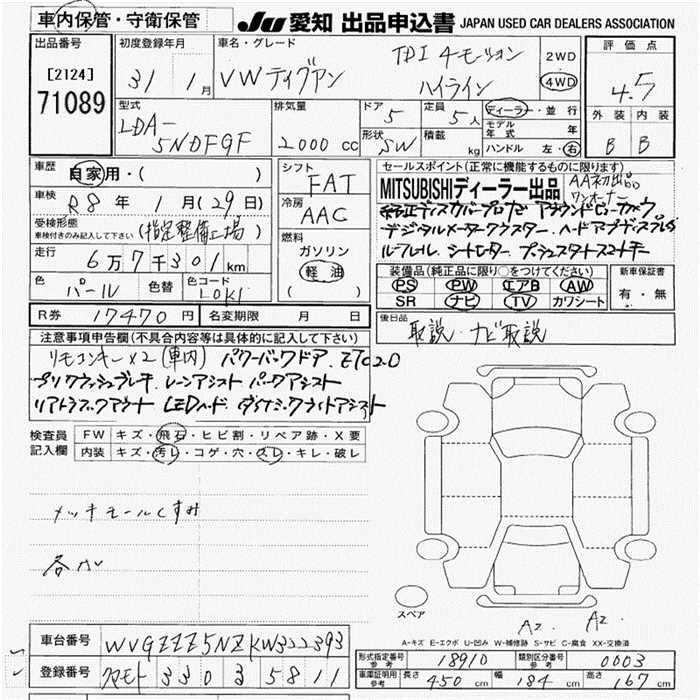 車内保管・守衛保管
JU 愛知 出品申込書 JAPAN USED CAR DEALERS ASSOCIATION
出品番号
[2124]
71089
初度登録年月
31年 1月
車名・グレード
VWティグアン
TDI 4モーション
ハイライン
2WD
4WD
評価点
4.5
外装 内装
B B
型式
LDA-
5NDFGF
排気量
2000 cc
ドア 5
定員 5人
形状 SW
積載 kg
ディーラー・並行
モデル年式 年
ハンドル 左・右
車歴
自家用・( )
車検
R8年 1月(29日)
受検形態
車検付きのみ記入して下さい
(指定整備工場)
走行
6万7千301km
色 パール
色替
色コード
LOK1
シフト
FAT
冷房
AAC
燃料
ガソリン
軽油
( )
セールスポイント(正常に機能するものに限ります)
MITSUBISHIディーラー出品
AA初出品
ワンオーナー
純正ディスカバープロナビ アラウンドビューカメラ
デジタルメータークラスター ヘッドアップディスプレイ
ルーフレール シートヒーター プッシュスタートスマートキー
装備品(純正品に限り○をつけてください)
PS PW エアB AW
SR ナビ TV カワシート
新車保証書
有・無
R券 17470円
名変期限 月 日
後日品
取説 ナビ取説
注意事項申告欄(不具合内容等は具体的に記入して下さい)
リモコンキー×2(車内) パワーバックドア ETC2.0
プリクラッシュブレーキ レーンアシスト パークアシスト
リアトラフィックアラート LEDヘッド ダイナミックライトアシスト
検査員
記入欄
FW キズ・飛石・ヒビ割・リペア跡・X要
内装 キズ・汚レ・コゲ・穴・スレ・キレ・破レ
メッキモールくすみ
スペア
A2 A2
A-キズ E-エクボ U-凹み W-補修跡 S-サビ C-腐食 XX-交換済
車台番号 WVGZZZ5NZKW322393
登録番号 クマモト 330 ヨ 5811
形式指定番号
参考
18910
類別区分番号
参考
0003
車庫証明用
参考
長さ 450cm
幅 184cm
高さ 167cm